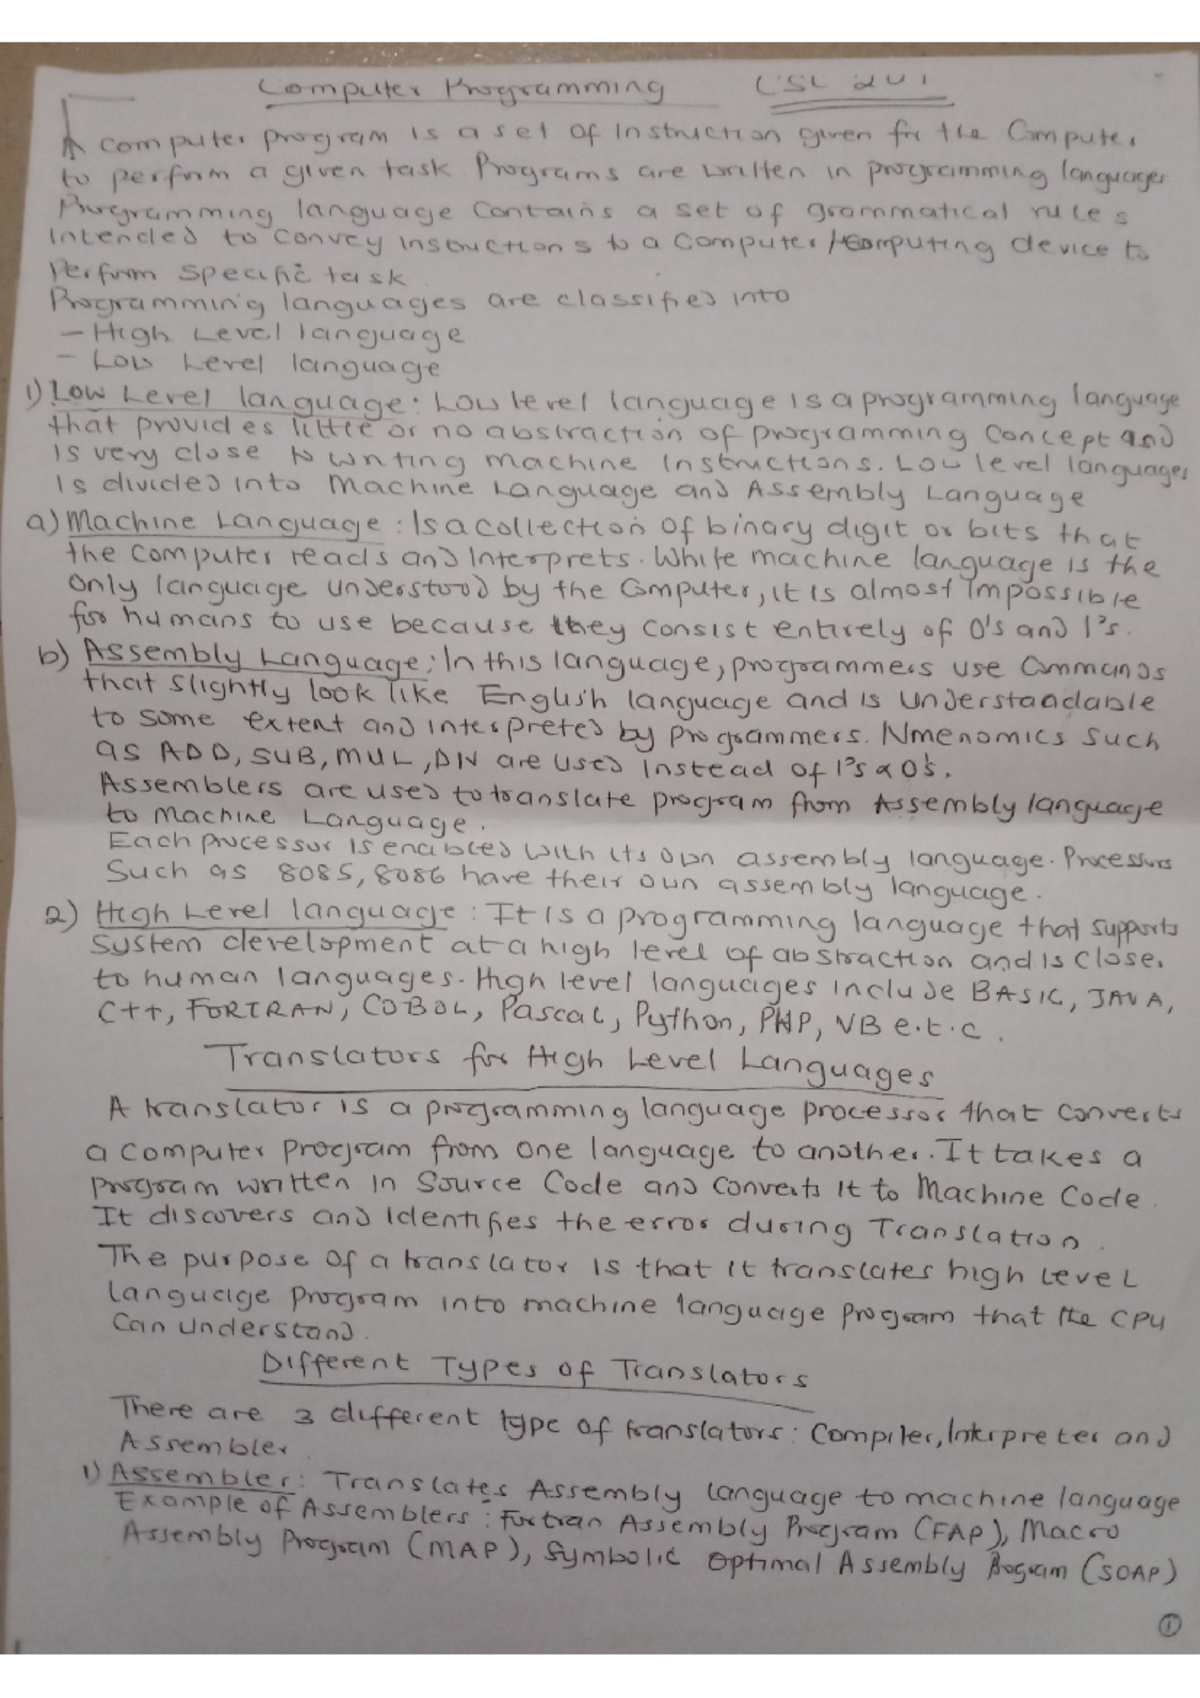 Computer Programming CSC 201
A computer program is a set of Instruction given for the Computer
to perform a given task Programs are written in programming languages
Programming language Contains a set of grammatical rules
Intended to Convey Instructions to a Computer/Computing device to
Perform Specific task
Programming languages are classified into
- High Level language
- Low Level language
1) Low Level language: Low level language is a programming language
that provides little or no abstraction of programming Concept and
Is very close to writing machine Instructions. Low level languages
Is divided into Machine Language and Assembly Language
a) Machine Language: Is a collection of binary digit or bits that
the Computer reads and Interprets. While machine language is the
only language understood by the Computer, it is almost Impossible
for humans to use because they Consist entirely of 0's and 1's.
b) Assembly Language: In this language, programmers use Commands
that slightly look like English language and is Understandable
to some extent and interpreted by programmers. Nmenomics Such
as ADD, SUB, MUL, DIV are used Instead of 1's & 0's.
Assemblers are used to translate program from Assembly language
to Machine Language.
Each processor is enabled with its own assembly language. Processors
Such as 8085, 8086 have their own assembly language.
2) High Level language: It is a programming language that supports
System development at a high level of abstraction and is Closer
to human languages. High level languages include BASIC, JAVA,
C++, FORTRAN, COBOL, Pascal, Python, PHP, VB e.t.c.
Translators for High Level Languages
A translator is a programming language processor that Converts
a Computer Program from one language to another. It takes a
program written In Source Code and Converts It to Machine Code.
It discovers and Identifies the error during Translation.
The purpose of a translator is that it translates high Level
language program into machine language program that the CPU
Can Understand.
Different Types of Translators
There are 3 different type of translators: Compiler, Interpreter and
Assembler
1) Assembler: Translates Assembly language to machine language
Example of Assemblers: Fortran Assembly Program (FAP), Macro
Assembly Program (MAP), Symbolic Optimal Assembly Program (SOAP)
1